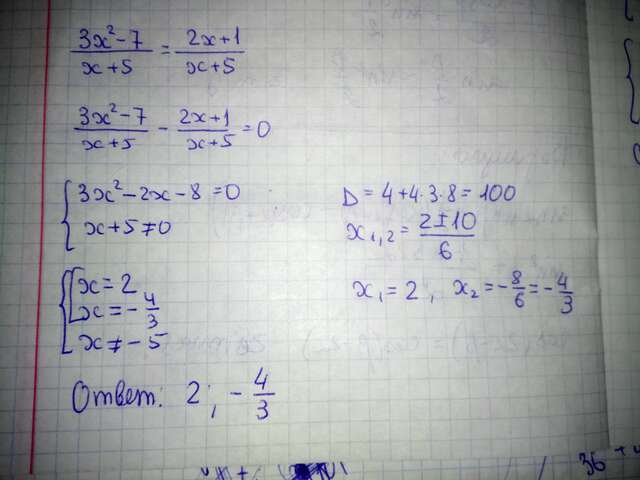 3x²-7/x+5 = 2x+1/x+5
3x²-7/x+5 - 2x+1/x+5 = 0
{ 3x²-2x-8=0
x+5≠0
D=4+4·3·8=100
x₁,₂ = 2±10/6
x₁=2, x₂=-8/6=-4/3
{ [ x=2
x=-4/3
x≠-5
Ответ: 2; -4/3
36 +